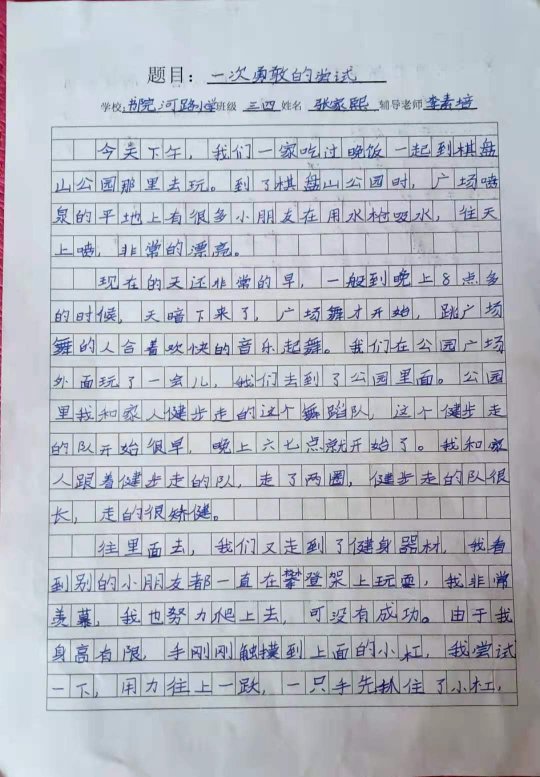 题目：一次勇敢的尝试
学校：书院河路小学班级 三四 姓名 张家熙 辅导老师 李素培
今天下午，我们一家吃过晚饭一起到棋盘
山公园那里去玩。到了棋盘山公园时，广场喷
泉的平地上有很多小朋友在用水枪吸水，往天
上喷，非常的漂亮。
现在的天还非常的早，一般到晚上8点多
的时候，天暗下来了，广场舞才开始，跳广场
舞的人合着欢快的音乐起舞。我们在公园广场
外面玩了一会儿，我们去到了公园里面。公园
里我和家人健步走的这个舞蹈队，这个健步走
的队开始很早，晚上六七点就开始了。我和家
人跟着健步走的队，走了两圈，健步走的队很
长，走的很矫健。
往里面去，我们又走到了健身器材，我看
到别的小朋友都一直在攀登架上玩耍，我非常
羡慕，我也努力爬上去，可没有成功。由于我
身高有限，手刚刚触摸到上面的小杠，我尝试
一下，用力往上一跃，一只手先抓住了小杠，